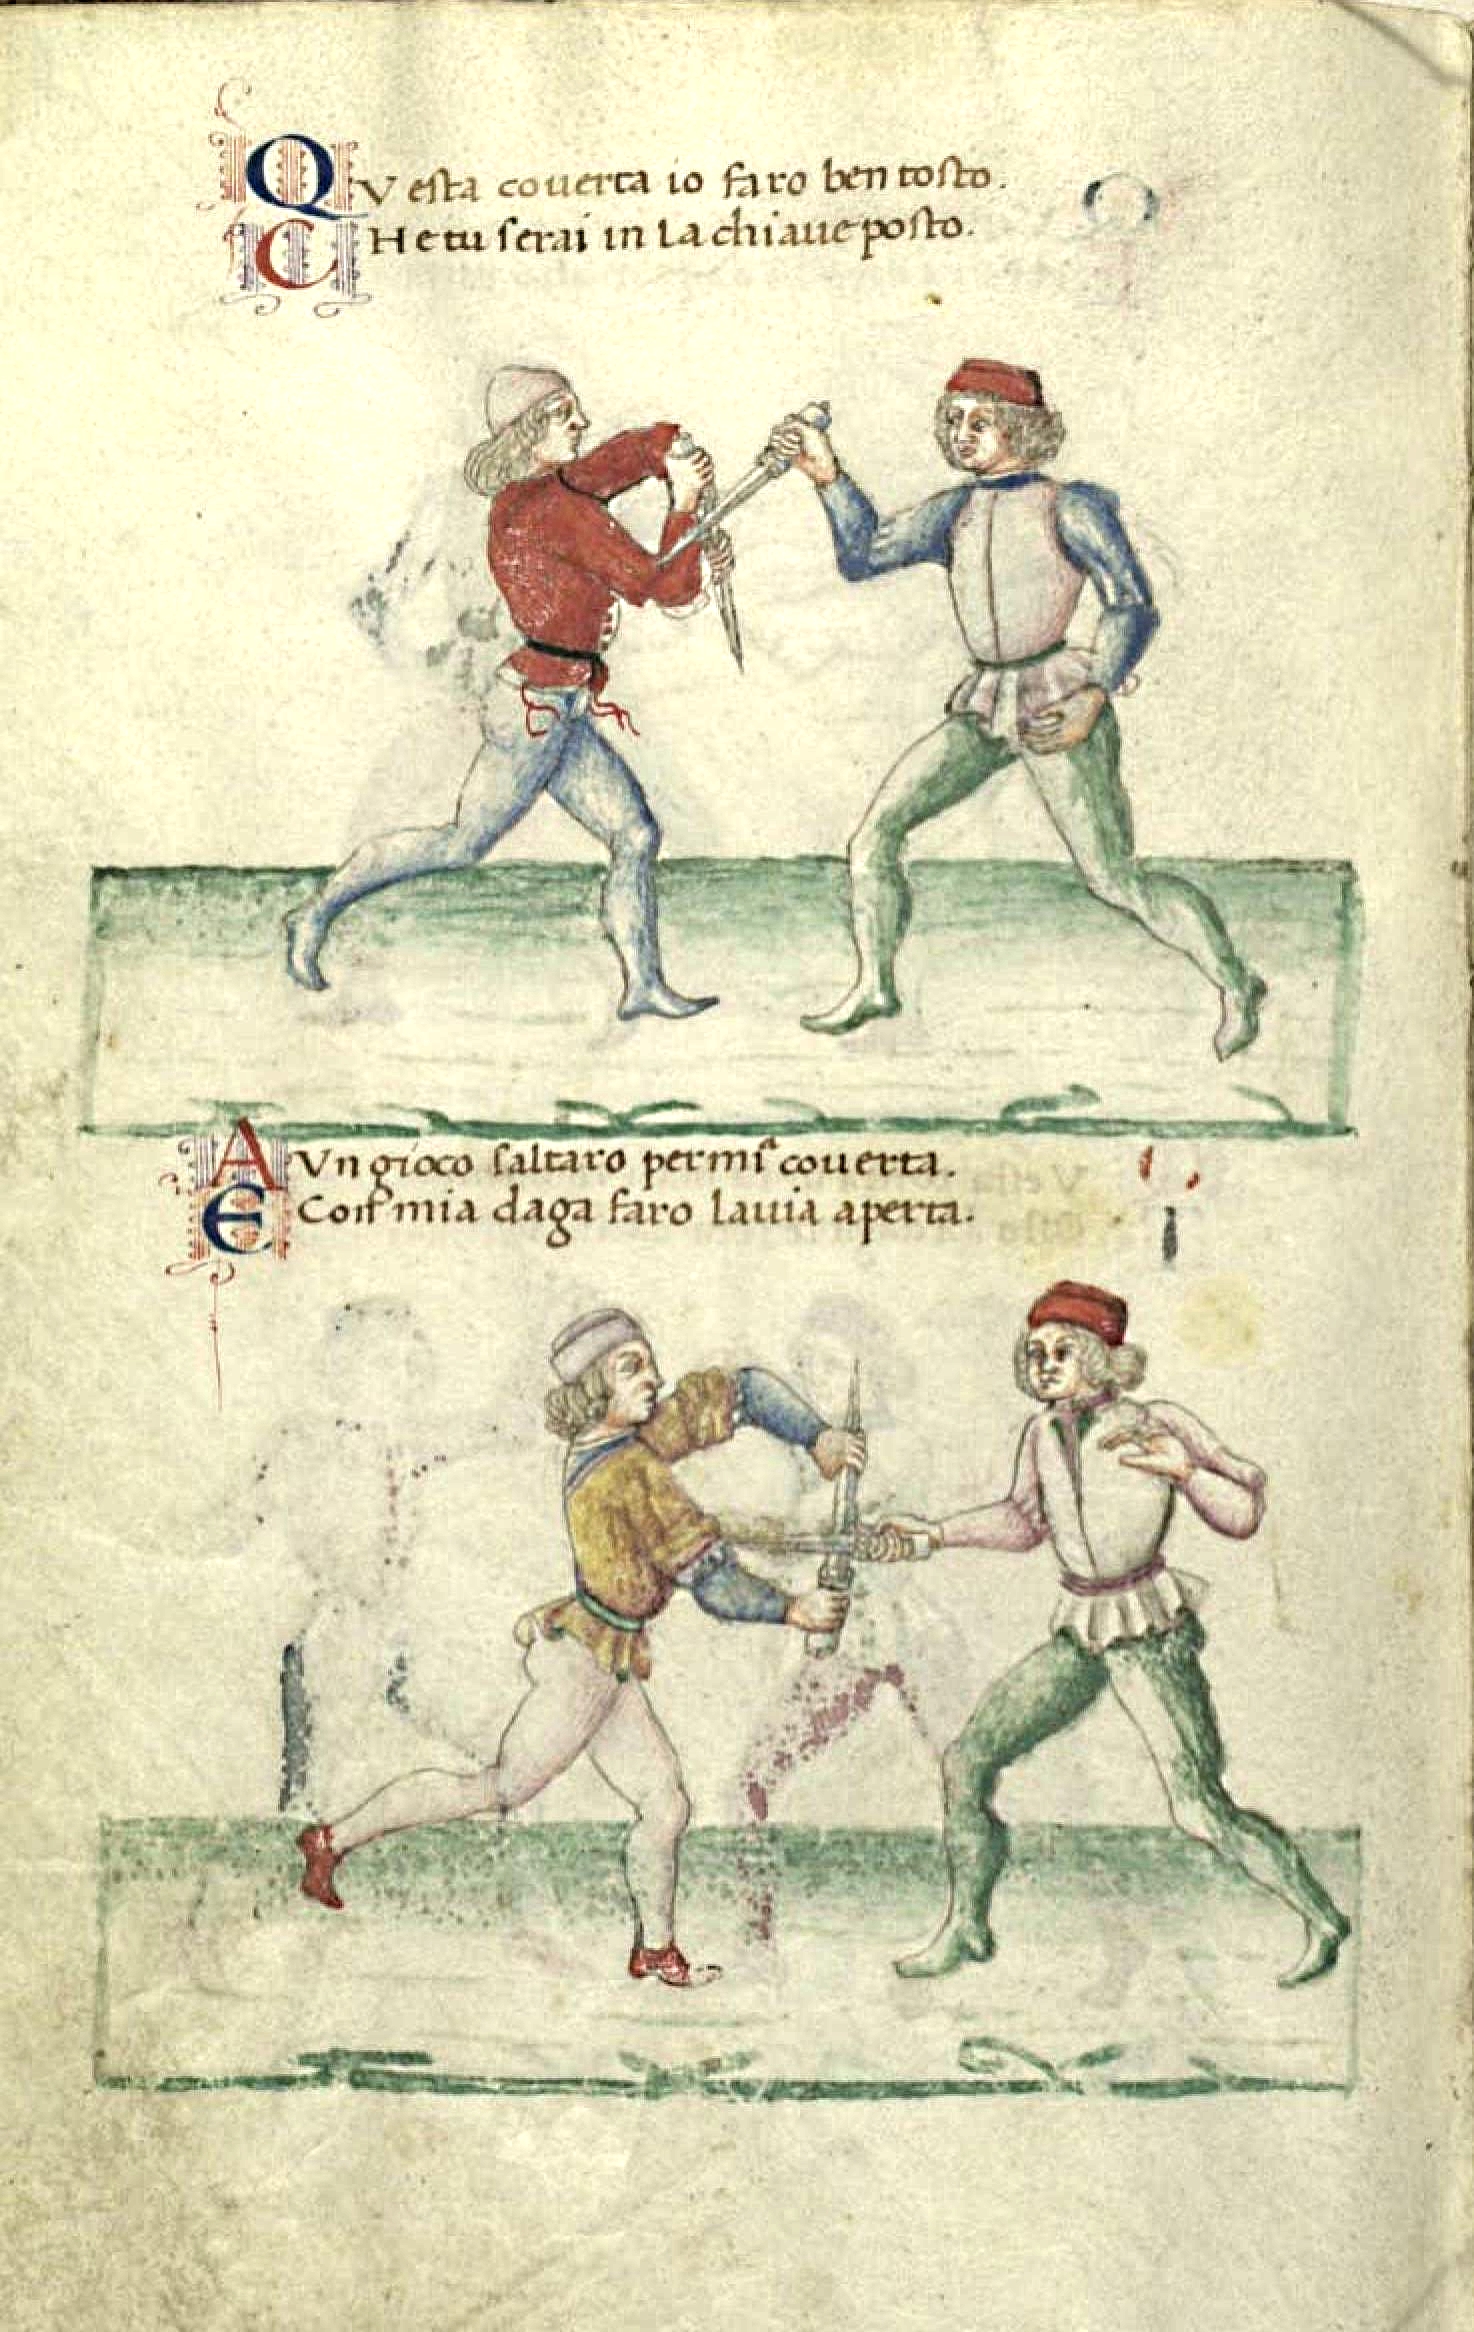 QVesta couerta io faro ben tosto.
CHetu serai in la chiaue posto.
AVn gioco saltaro per mia couerta.
E Con mia daga faro la uia aperta.